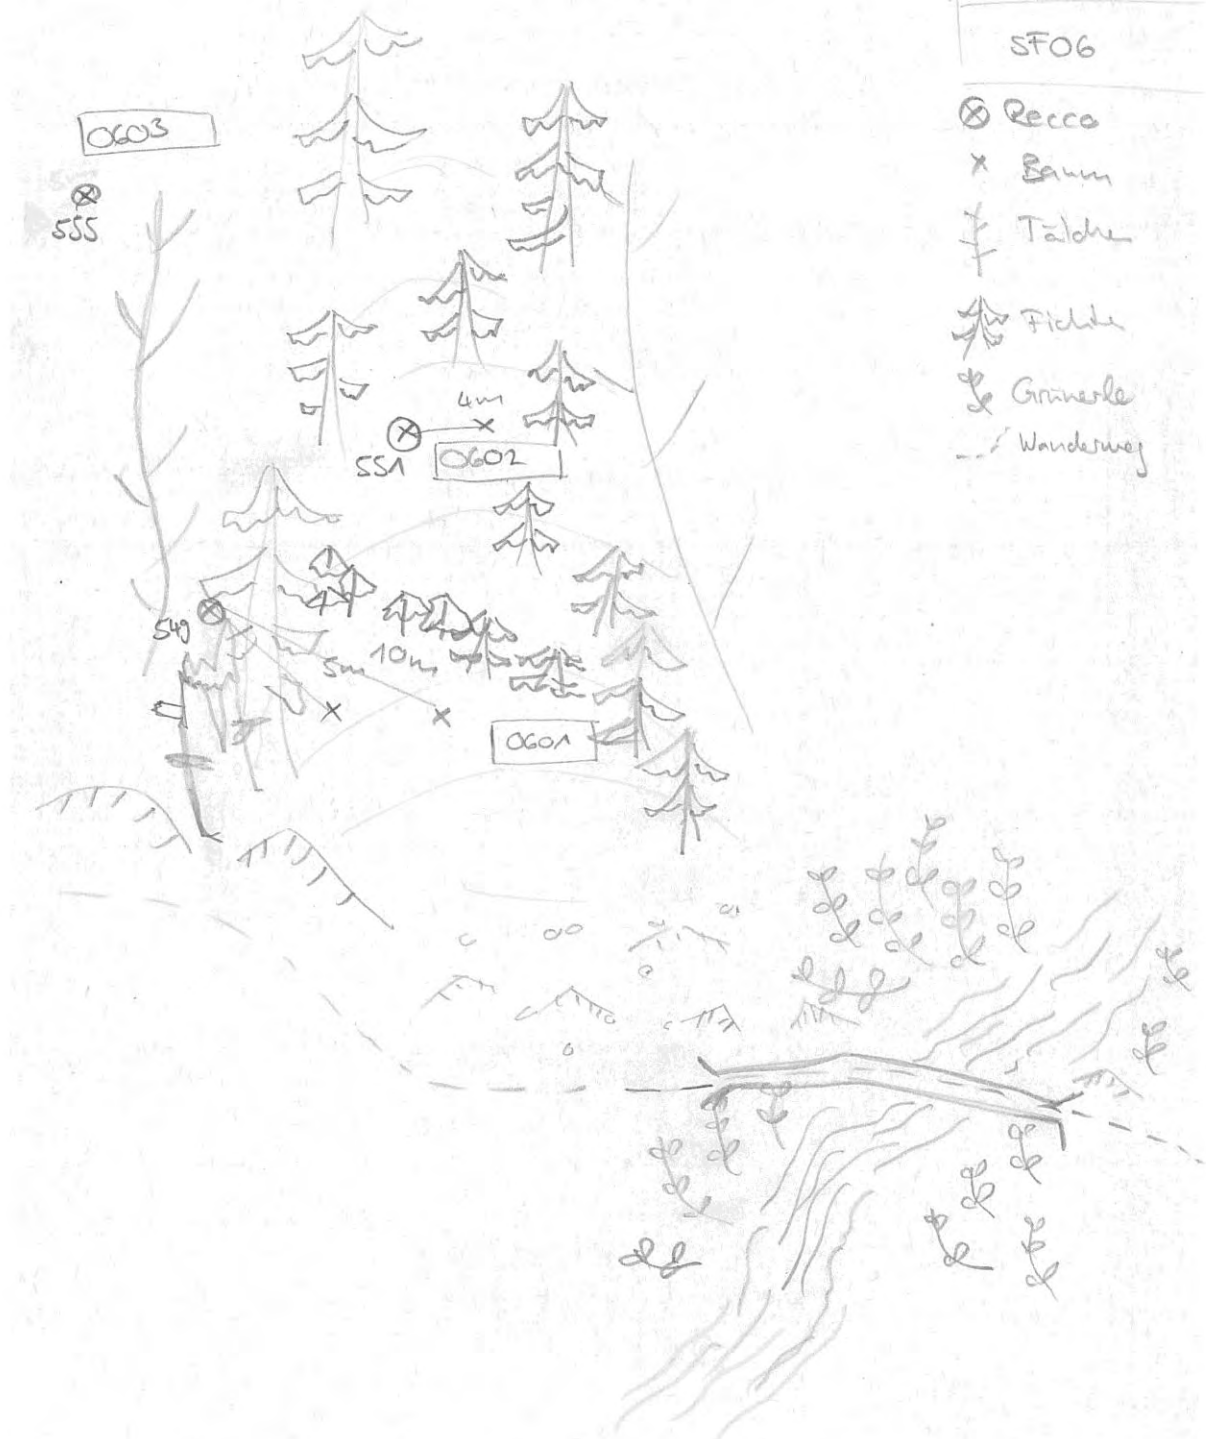 SF06
Recco
Baum
Tälchen
Fichte
Grünerle
Wanderweg
0603
5m
555
4m
551
0602
549
5m
10m
0601